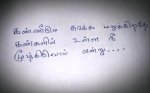 கண்ணீரை சுமக்க மறுக்கிறது
கண்களில் உள்ள நீ
மூழ்கிவிடுவாய் என்று....